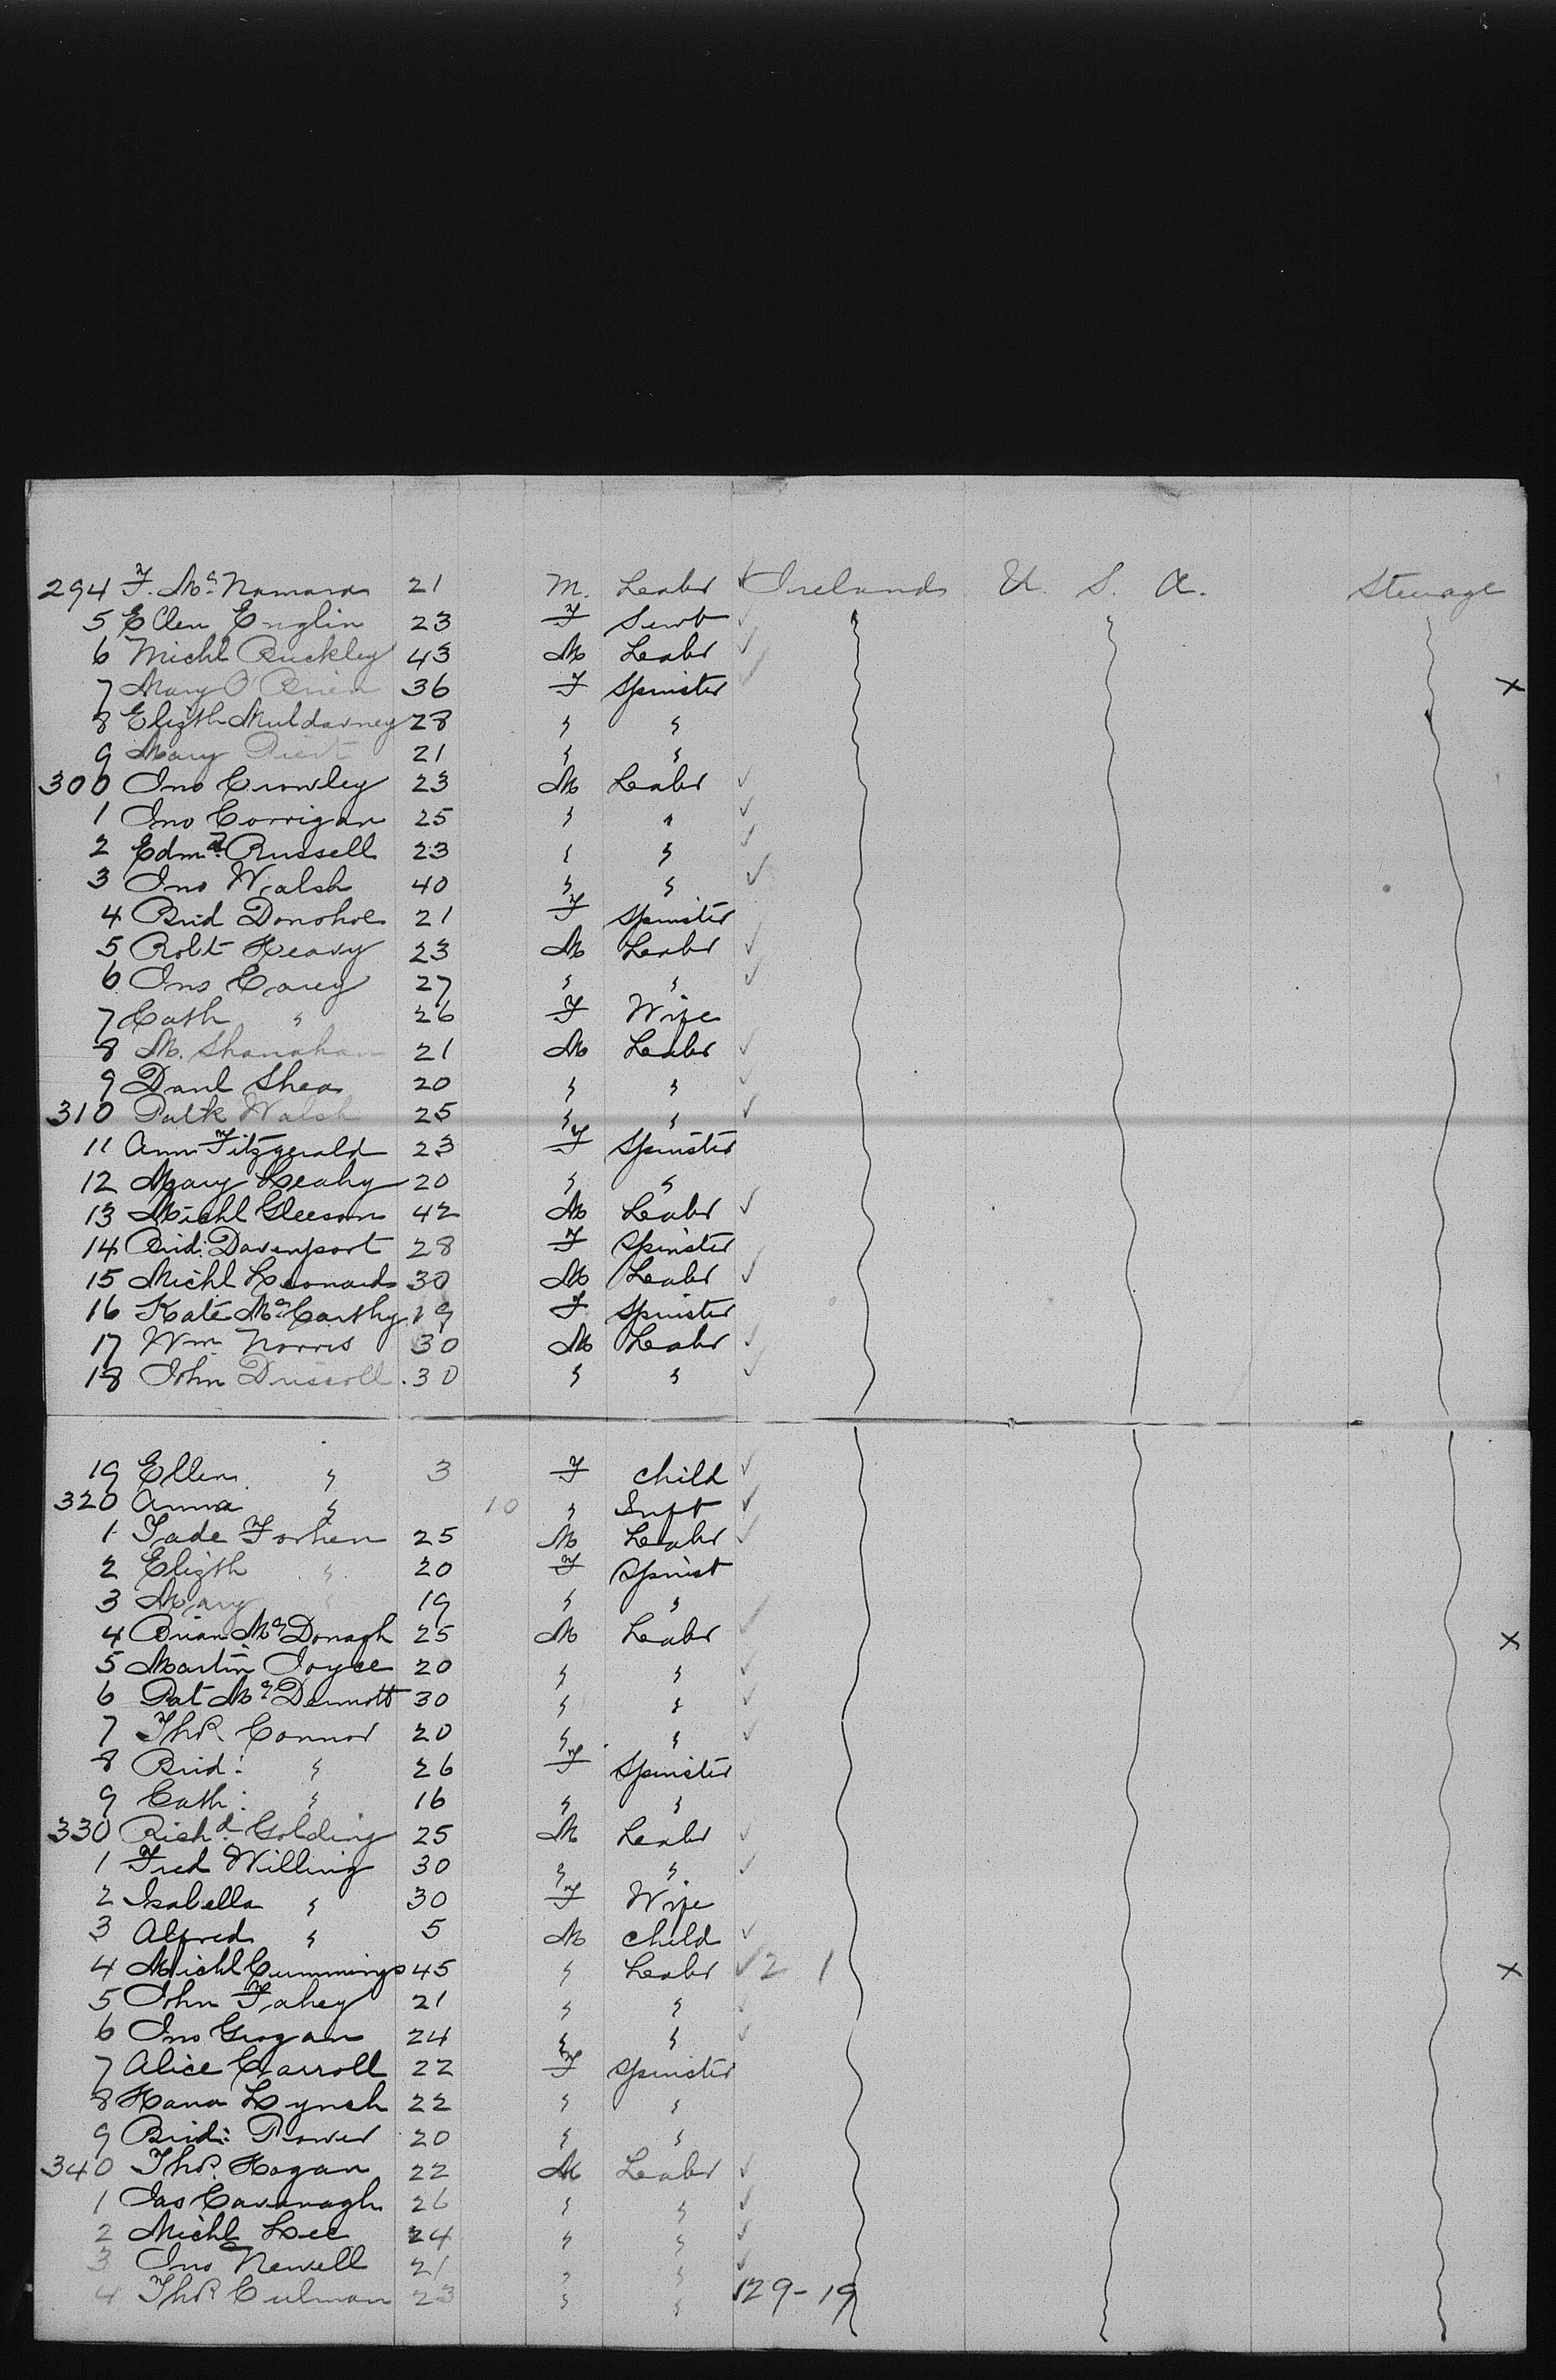 294 F. McNamara 21 M. Labr ✓ Ireland U. S. A. Steerage
5 Ellen Englin 23 F Servt ✓
6 Michl Buckley 43 M Labr ✓
7 Mary O'Brien 36 F Spinster ✓ X
8 Elizth Muldarney 28 " "
9 Mary 21 " "
300 Jno Crowley 23 M Labr ✓
1 Jno Corrigan 25 " " ✓
2 Edmd. Russell 23 " " ✓
3 Jno Walsh 40 " " ✓
4 Brid Donohoe 21 F Spinster
5 Robt Heavy 23 M Labr ✓
6 Jno Carey 27 " " ✓
7 Cath " 26 F Wife
8 M. Shanahan 21 M Labr ✓
9 Danl Shea 20 " " ✓
310 Patk Walsh 25 " " ✓
11 Ann Fitzgerald 23 F Spinster
12 Mary Leahy 20 " "
13 Michl Gleeson 42 M Labr ✓
14 Brid: Davenport 28 F Spinster
15 Michl Leonard 30 M Labr ✓
16 Kate McCarthy 19 F Spinster
17 Wm Norris 30 M Labr ✓
18 John Driscoll 30 " " ✓
19 Ellen " 3 F Child ✓
320 Anna " 10 " Inft ✓
1 Tade Forhen 25 M Labr ✓
2 Elizth " 20 F Spinst
3 Mary " 19 " "
4 Brian McDonagh 25 M Labr ✓ X
5 Martin Joyce 20 " " ✓
6 Pat McDermott 30 " " ✓
7 Thos. Connor 20 " " ✓
8 Brid: " 26 F Spinster
9 Cath: " 16 " "
330 Richd. Golding 25 M Labr ✓
1 Fred Willing 30 " " ✓
2 Isabella " 30 F Wife
3 Alfred " 5 M Child ✓
4 Michl Cummings 45 " Labr ✓ 2 1 X
5 John Fahey 21 " " ✓
6 Jno Grogan 24 " " ✓
7 Alice Carroll 22 F Spinster
8 Hana Lynch 22 " "
9 Brid: Power 20 " "
340 Thos. Hogan 22 M Labr ✓
1 Jas Cavanagh 26 " " ✓
2 Michl Lee 24 " " ✓
3 Jno Newell 21 " " ✓
4 Thos Culman 23 " " 129-19